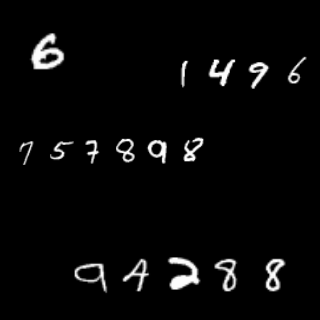 6
1496
757898
94288